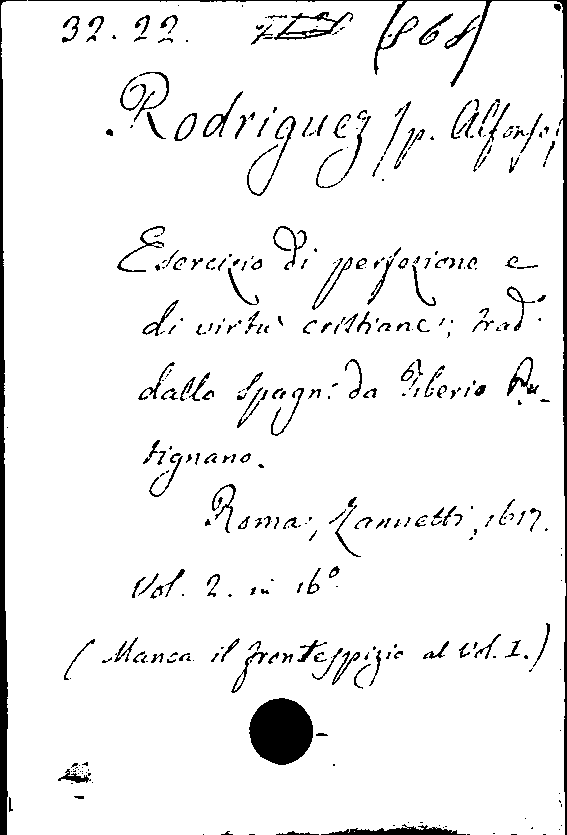 32. 22. (868)
Rodriguez (p. Alfonso)
Esercizio di perfezione e
di virtù cristiane; trad.
dallo spagn: da Tiberio Pu-
tignano.
Roma, Zannetti, 1617.
Vol. 2. in 16º
(Manca il frontespizio al vol. I.)